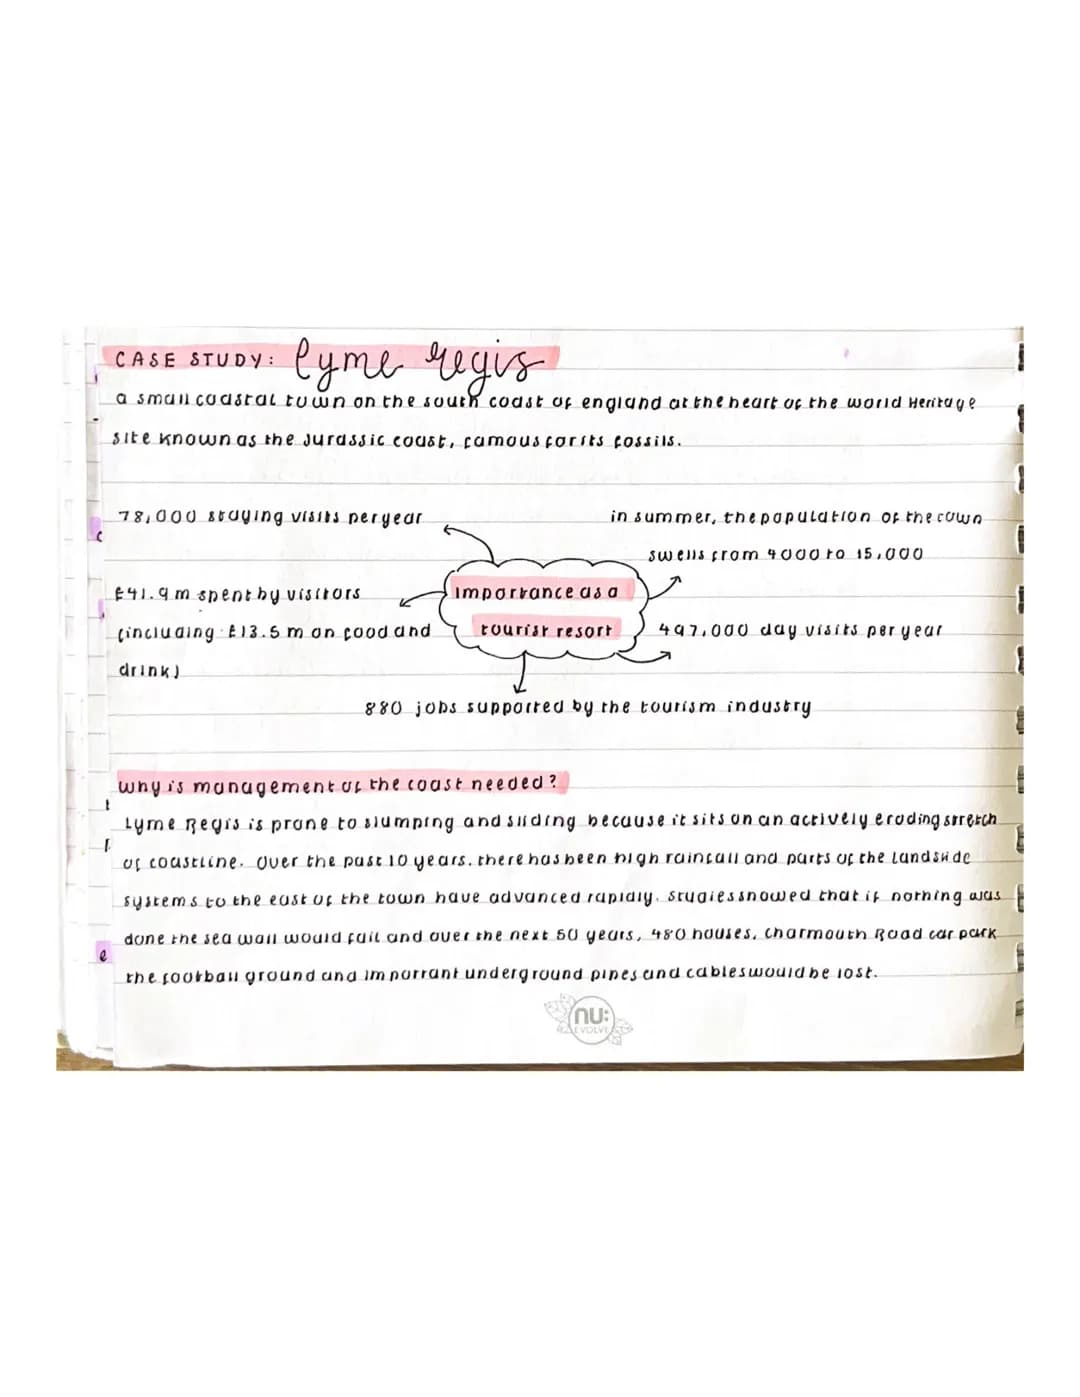 CASE STUDY: lyme regis
a small coastal town on the south coast of england at the heart of the world Heritage
site known as the Jurassic coast, famous for its fossils.
78,000 staying visits per year
in summer, the population of the town
swells from 4000 to 15,000
£41.9m spent by visitors
(including £13.5m on food and
drink)
importance as a
tourist resort
497,000 day visits per year
880 jobs supported by the tourism industry
why is management of the coast needed?
Lyme Regis is prone to slumping and sliding because it sits on an actively eroding stretch
of coastline. Over the past 10 years, there has been high rainfall and parts of the landslide
systems to the east of the town have advanced rapidly. Studies showed that if nothing was
done the sea wall would fail and over the next 50 years, 480 houses, Charmouth Road car park
the football ground and important underground pipes and cables would be lost.
nu:
EVOLVE